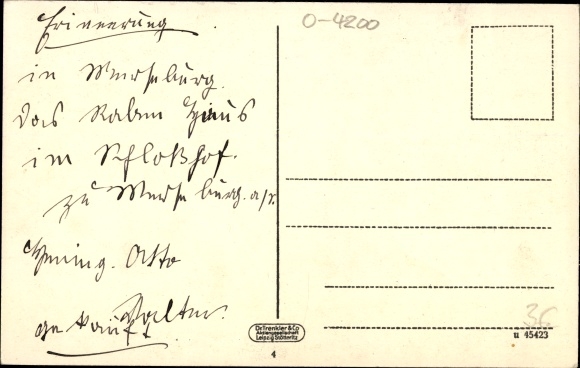 Erinnerung
in Merseburg.
das Raben Haus
im Schloßhof.
zu Merseburg. a/S.
Otto
gekauft
O-4200
36
Dr. Trenkler & Co
Aktiengesellschaft
Leipzig-Stötteritz
4
u 45423